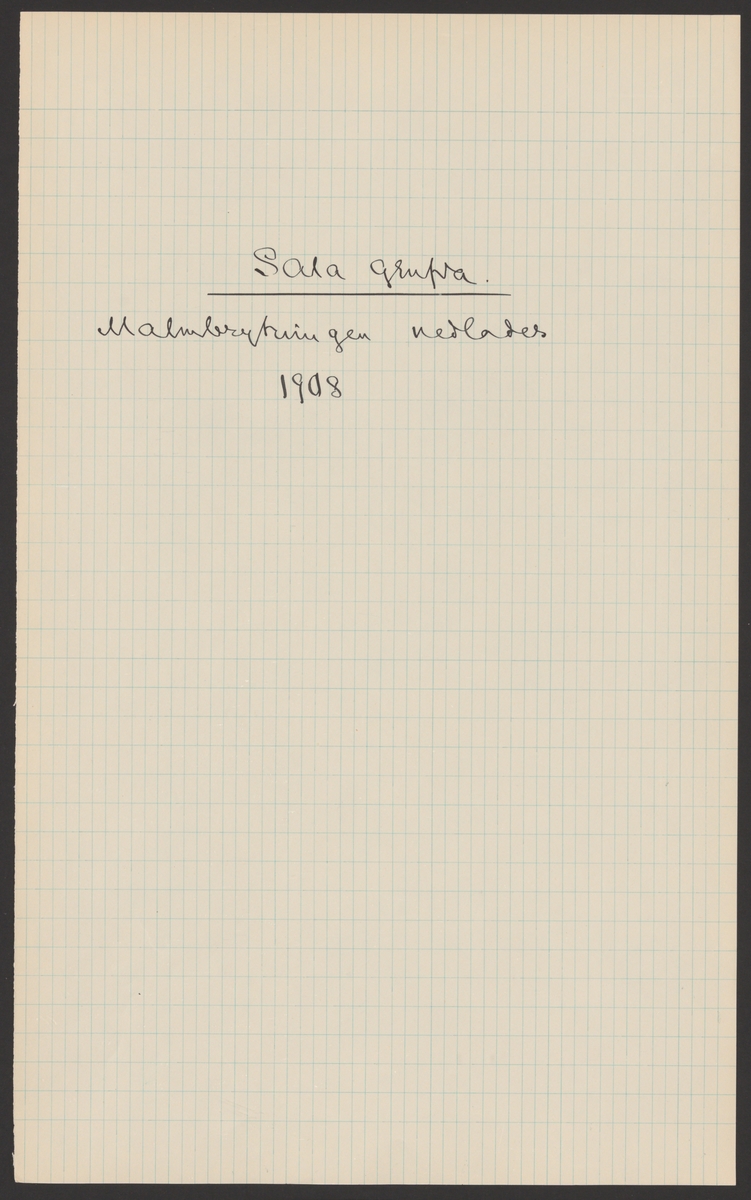 Sala grufva.
Malmbrytningen nedlades
1908